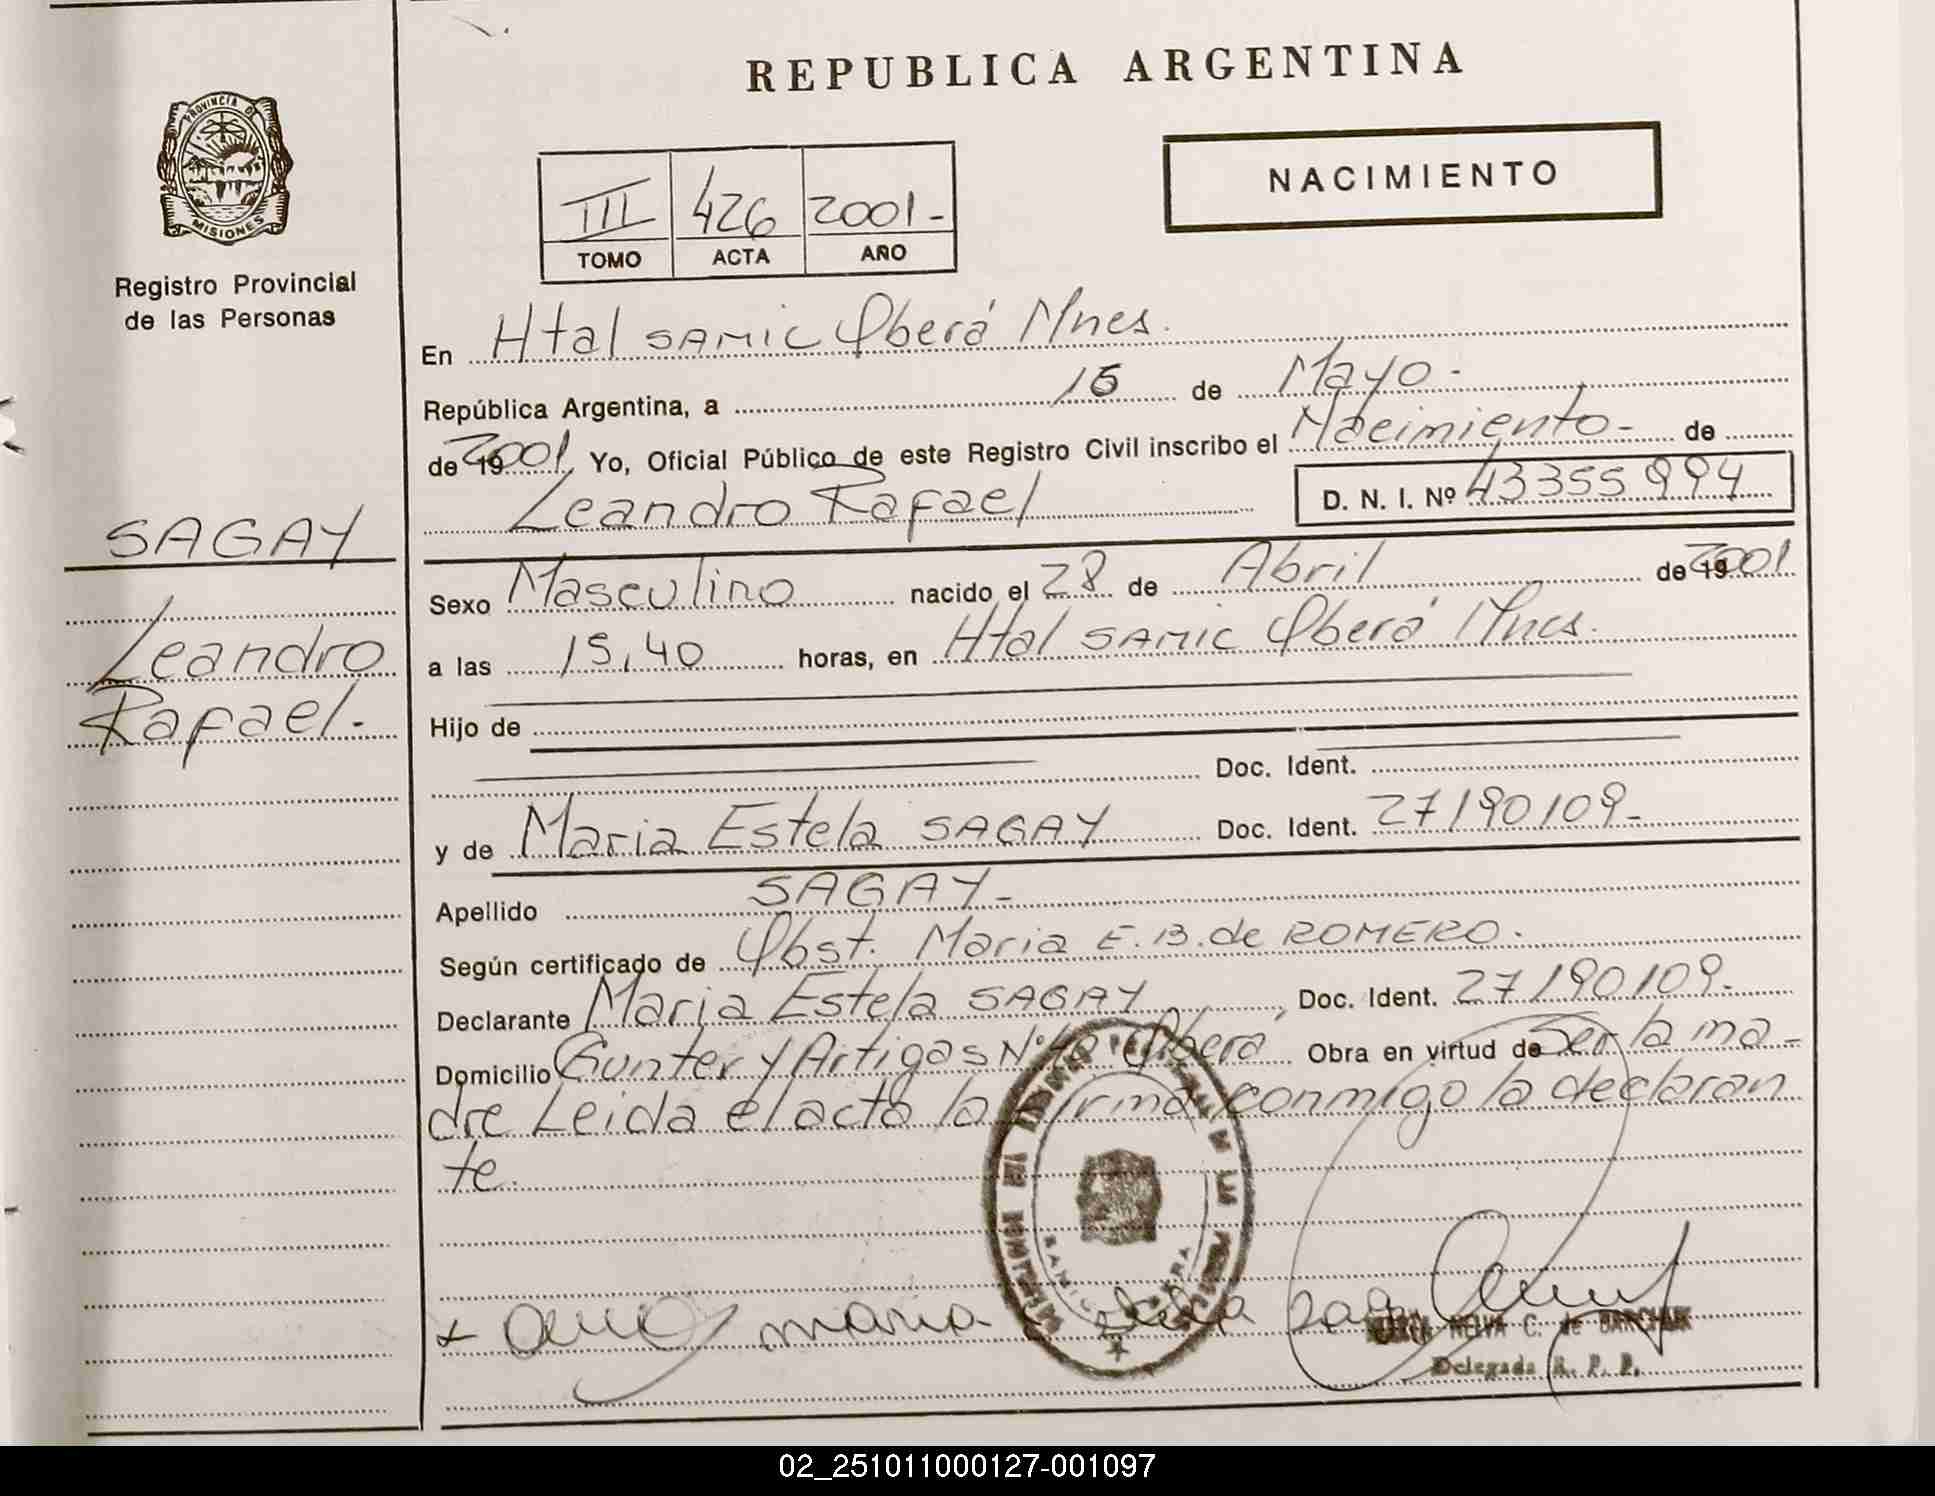 REPUBLICA ARGENTINA
PROVINCIA DE
MISIONES
Registro Provincial
de las Personas
NACIMIENTO
III 426 2001-
TOMO ACTA AÑO
En Htal SAMIC Oberá Mnes.
República Argentina, a 15 de Mayo-
de 2001 Yo, Oficial Público de este Registro Civil inscribo el Nacimiento- de
Leandro Rafael D. N. I. Nº 43355994
SAGAY
Leandro
Rafael-
Sexo Masculino nacido el 28 de Abril de 2001
a las 15,40 horas, en Htal SAMIC Oberá Mnes.
Hijo de
Doc. Ident.
y de Maria Estela SAGAY Doc. Ident. 27190109-
Apellido SAGAY-
Según certificado de Obst. Maria E. B. de ROMERO.
Declarante Maria Estela SAGAY, Doc. Ident. 27190109-
Domicilio Gunter y Artigas Nº Oberá Obra en virtud de Ser la ma-
dre Leida el acta la firma conmigo la declaran
te.
maria
C. de
Delegada R. P. P.
02_251011000127-001097